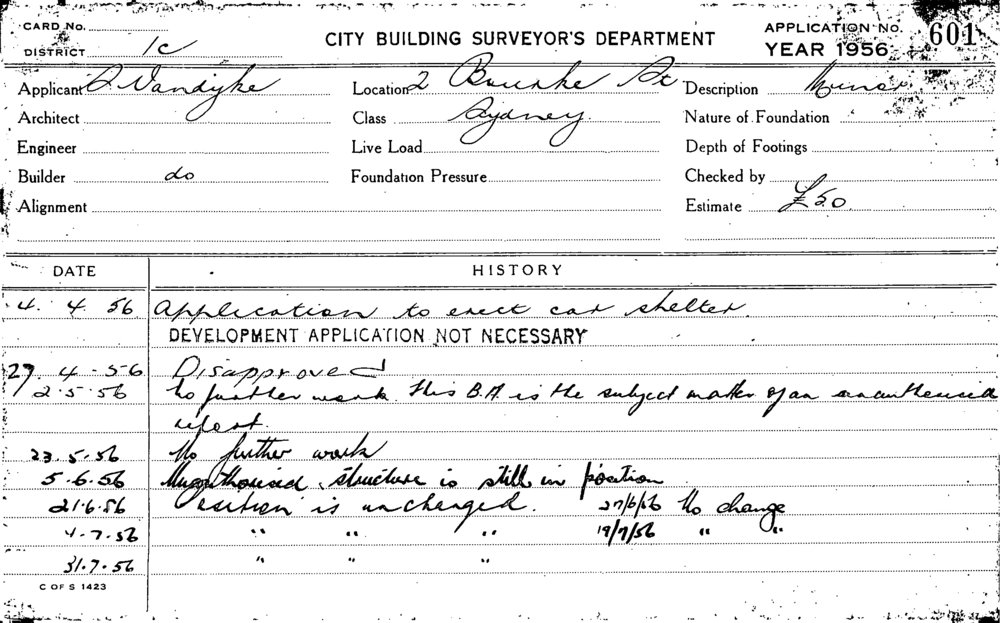 CARD No.
DISTRICT 1c
CITY BUILDING SURVEYOR'S DEPARTMENT
APPLICATION No. 601
YEAR 1956
Applicant A Vandyke Location 2 Bourke St Description Minor
Architect Class Sydney Nature of Foundation
Engineer Live Load Depth of Footings
Builder do Foundation Pressure Checked by
Alignment Estimate £50
DATE HISTORY
4. 4. 56 Application to erect car shelter.
DEVELOPMENT APPLICATION NOT NECESSARY
27. 4. 56 Disapproved
2.5.56 No further work. This B.A. is the subject matter of an unauthorised
report.
23.5.56 No further work
5.6.56 Unauthorised structure is still in position
21.6.56 Position is unchanged. 27/6/56 No change
4.7.56 " " " 19/7/56 " "
31.7.56 " " "
C OF S 1423